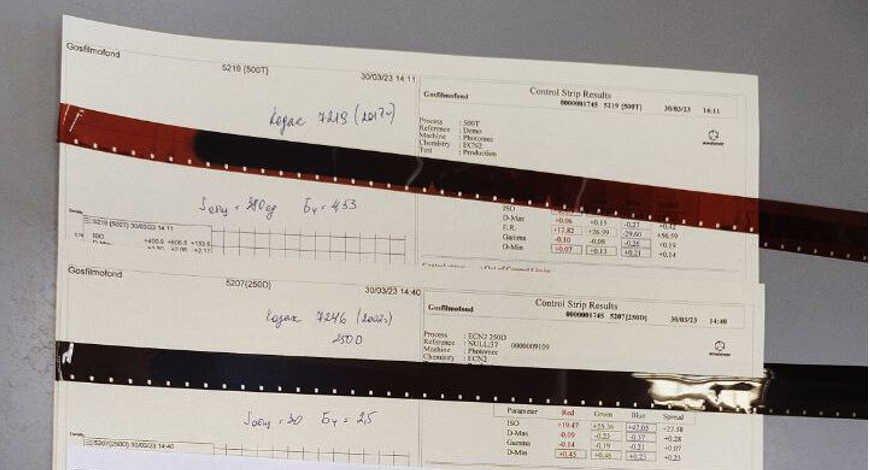 Gosfilmofond
5219 (500T)
30/03/23 14:11
Кодак 7219 (2017г)
Gosfilmofond
Control Strip Results
0000001745 5219 [500T] 30/03/23 14:11
Process : 500T
Reference : Demo
Machine : Photomec
Chemistry : ECN2
Test : Production
Sобщ = 380ед Бч = 4,53
5219 (500T) 30/03/23 14:11
ISO
ISO
D-Max +0.06 +0.15 -0.27 +0.42
E.R. +17.82 +26.99 -29.60 +56.59
Gamma -0.10 -0.08 -0.26 +0.19
D-Min +0.07 +0.13 +0.21 +0.14
Gosfilmofond
5207(250D)
30/03/23 14:40
Кодак 7246 (2002г)
250D
Gosfilmofond
Control Strip Results
0000001745 5207[250D] 30/03/23 14:40
Process : ECN2 250D
Reference : NULL:37 0000009109
Machine : Photomec
Chemistry : ECN2
Sобщ = 30 Бч = 2,5
5207(250D) 30/03/23 14:40
Parameter Red Green Blue Spread
ISO +19.47 +47.05 +27.58
D-Max -0.09 -0.23 -0.37 +0.28
Gamma -0.14 -0.19 -0.21 +0.07
D-Min +0.45 +0.46 +0.23